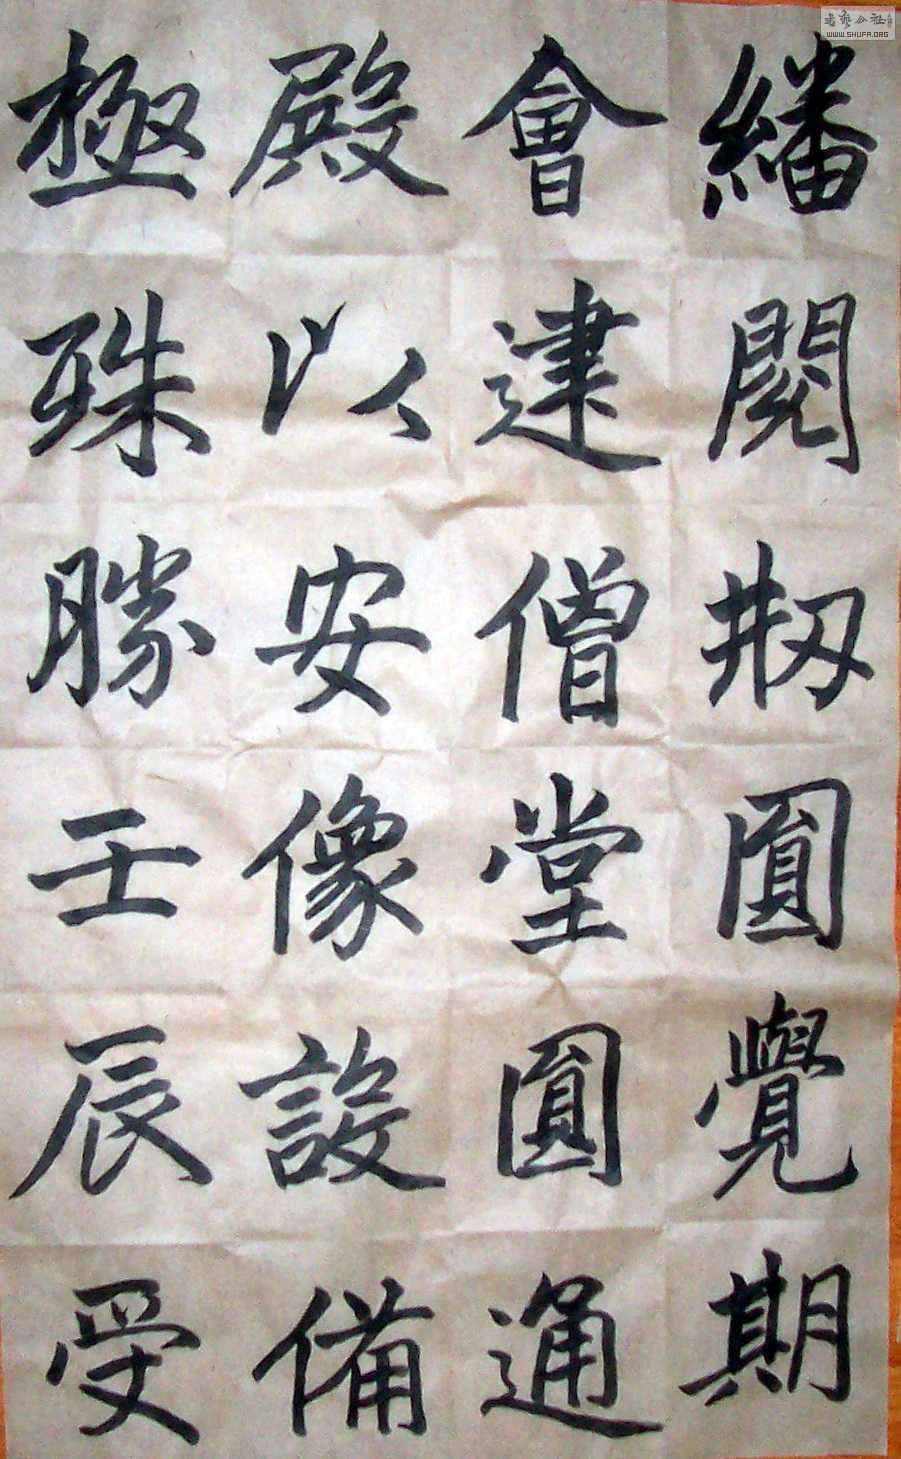 繙閱刱圓覺期
會建僧堂圓通
殿以安像設備
極殊勝壬辰受
書藝公社
WWW.SHUFA.ORG